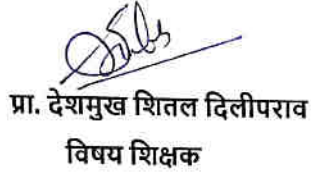 प्रा. देशमुख शितल दिलीपराव
विषय शिक्षक